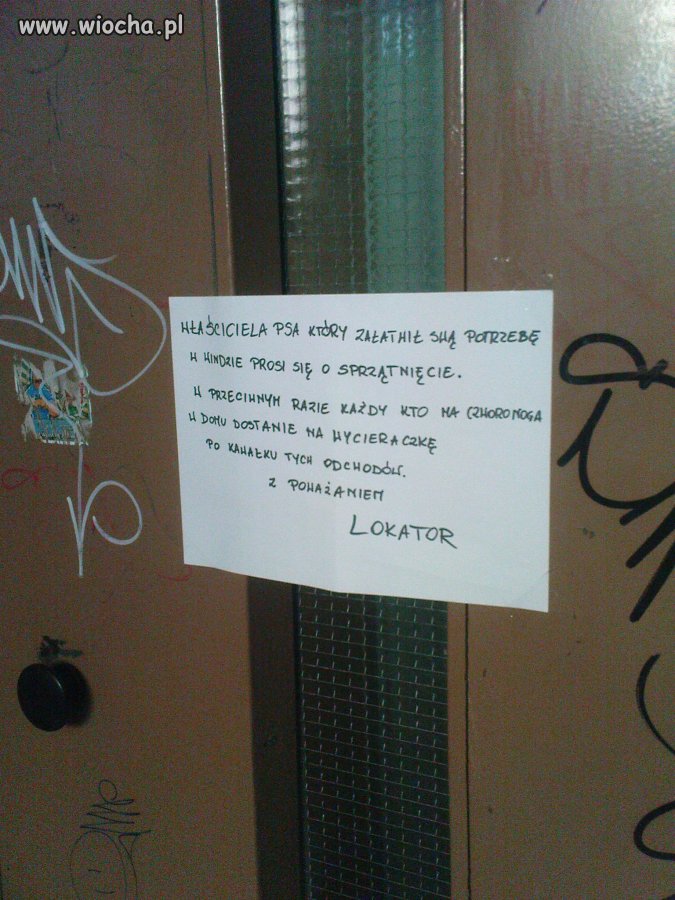 www.wiocha.pl
WŁAŚCICIELA PSA KTÓRY ZAŁATWIŁ SWĄ POTRZEBĘ
W WINDZIE PROSI SIĘ O SPRZĄTNIĘCIE.
W PRZECIWNYM RAZIE KAŻDY KTO MA CZWORONOGA
W DOMU DOSTANIE NA WYCIERACZKĘ
PO KAWAŁKU TYCH ODCHODÓW.
Z POWAŻANIEM
LOKATOR